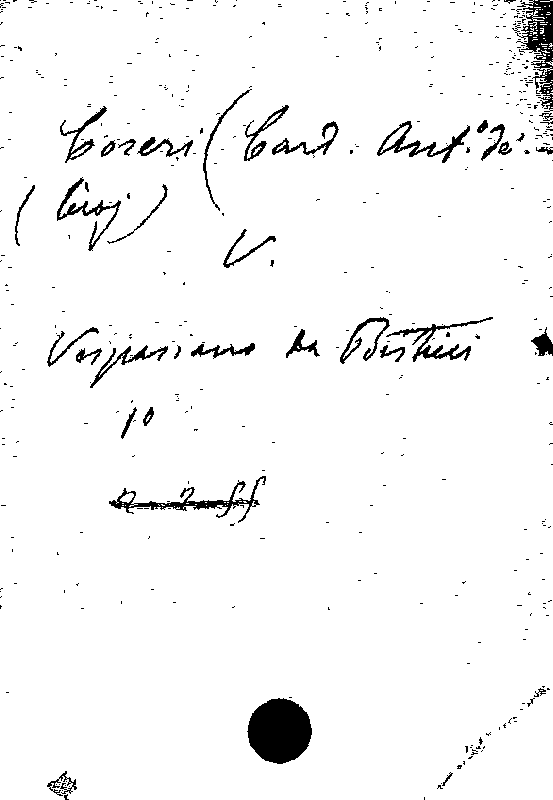 Coreri (Card. Ant.º de'
(biog)
V.
Vespasiano da Bisticci
10